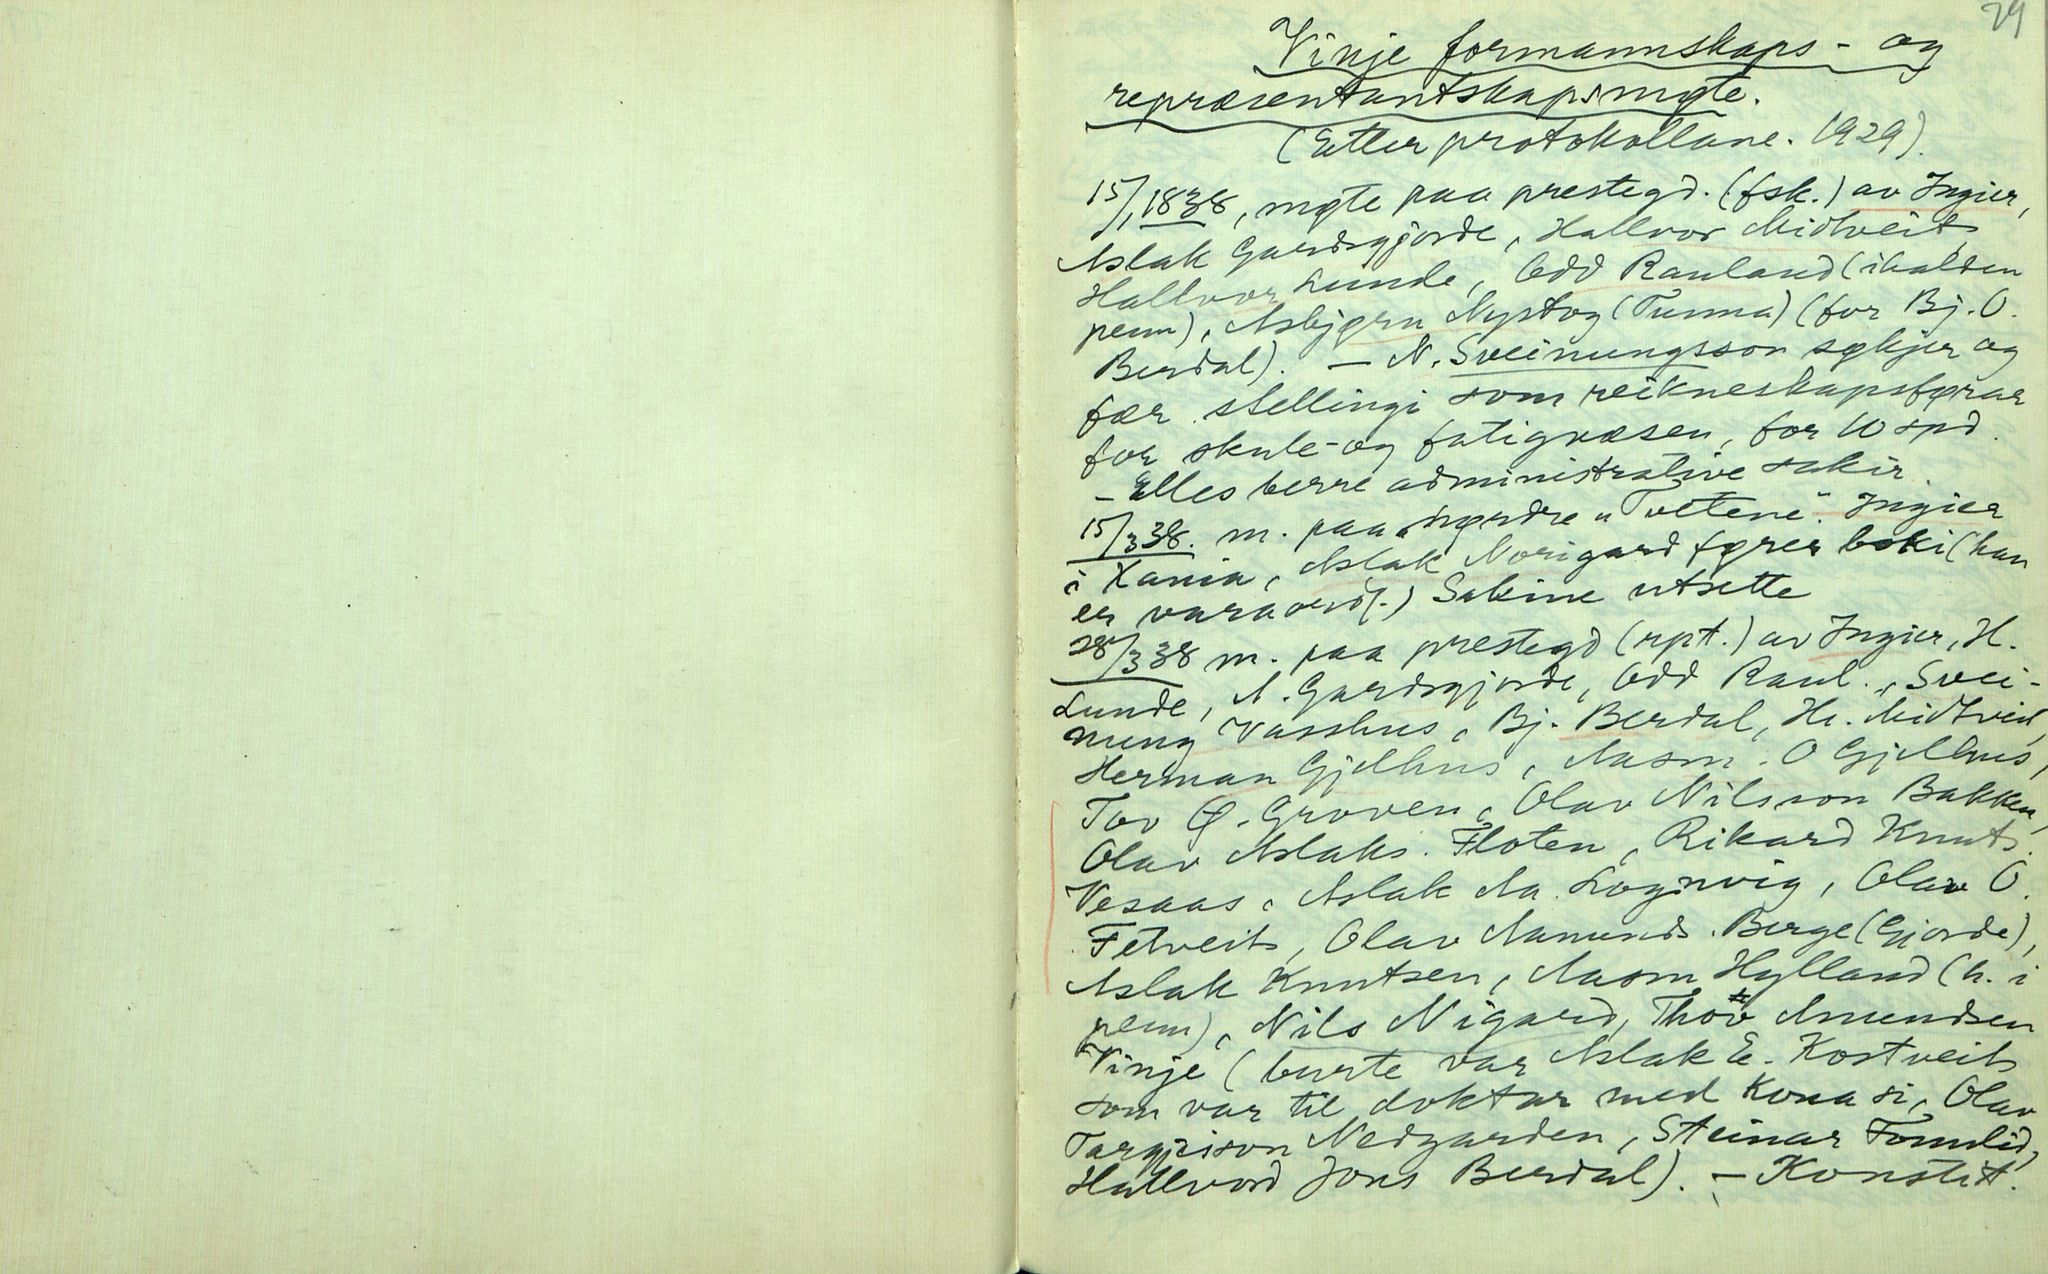 29
Vinje formannskaps- og
repræsentantskapsmøte.
(Etter protokollane. 1929).
15/1 1838, møte paa prestegd. (fsk.) av Ingier,
Aslak Gardsgjorde, Hallvor Midtveit,
Hallvor Lunde, Odd Rauland (ihalden
penn), Asbjørn Nystog (Tunna) (for Bj. O.
Berdal). — N. Sveinungsson søkjer og
fær stellingi som reikneskapsførar
for skule- og fatigvæsen, for 10 spd.
- Elles berre administrative sakir
15/3 38. m. paa nørdre "Tveitene". Ingier
i Xania, Aslak Norigard fører boki (han
er varaordf.) Sakine utsette
28/3 38 m. paa prestegd (rpt.) av Ingier, H.
Lunde, A. Gardsgjorde, Odd Raul., Svei-
nung Vasshus, Bj. Berdal, H. Midtveit,
Herman Gjellhus, Aasm. O Gjellhus,
Tov Ø. Groven, Olav Nilsson Bakken,
Olav Aslaks. Floten, Rikard Knuts.
Vesaas, Aslak Aa. Lognvig, Olav O.
Fetveit, Olav Aamunds. Berge (Gjorde),
Aslak Knutsen, Aasm Hylland (h. i
penn), Nils Nigard, Thov Amundsen
Vinje (burte var Aslak E. Kostveit
som var til doktar med kona si, Olav
Targjeison Nedgarden, Steinar Tomlid,
Hallvord Jons Berdal). - Konstit.